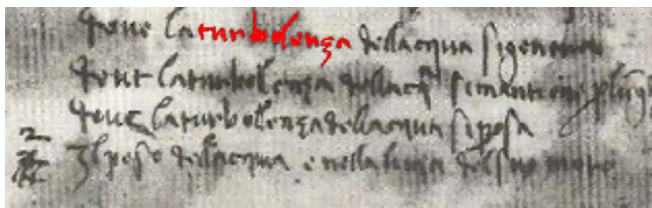 doue laturbolenza dellacqua sigenera
doue laturbolenza dellacq simantiene plugho
doue laturbolenzadellacqua siposa
2 dellacqua e nella del suo moto